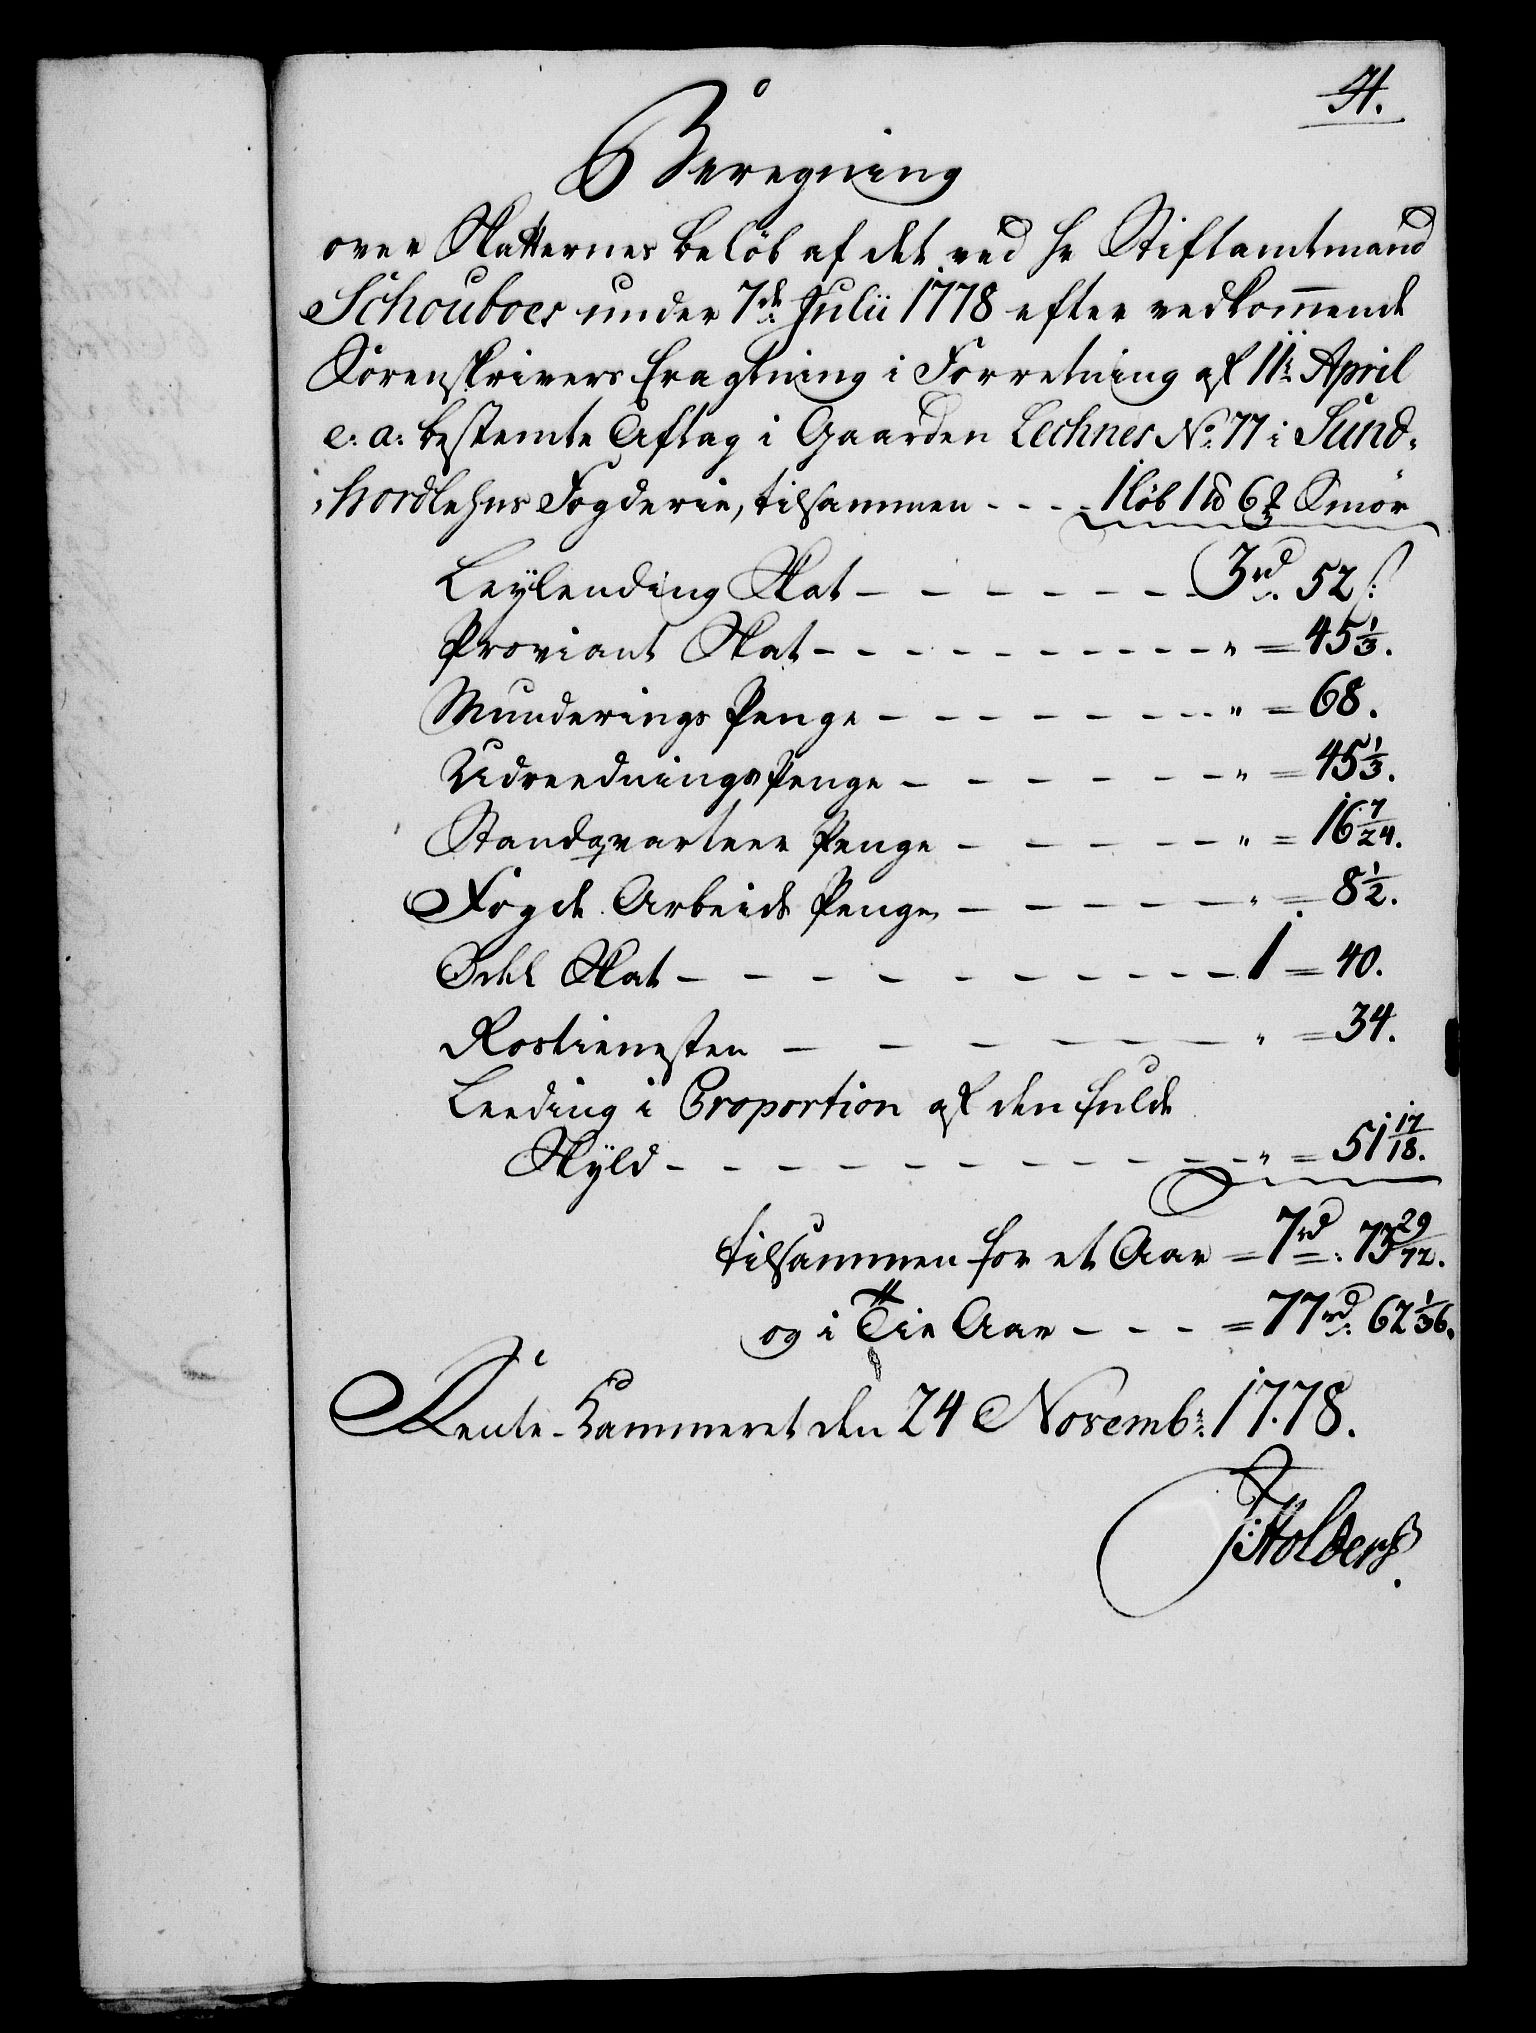 H.
Beregning
over Skatternes Beløb af det ved Hr Stiftamtmand
Schouboes under 7de Julii 1778 efter vedkom̅ende
Sorenskrivers Eragtning i Forretning af 11te April
e: a: bestemte Aftag i Gaarden Lechnes No: 77 i Sund-
hordlehns Fogderie, tilsammen - - - 1 løb 1 6 Smør
Leylending Skat - - - - - - 3 rd. 52 ß:
Proviant Skat - - - - - - - - - " = 45 1/3.
Munderings Penge - - - - - - - " = 68.
Udreednings Penge - - - - - - - " = 45 1/3.
Standqvarteer Penge - - - - - " = 16 7/24.
Fogde Arbeids Penge - - - - - " = 8 1/2.
Odel Skat - - - - - - - - - 1 = 40.
Rostienesten - - - - - - " = 34.
Leeding i Proportion af den fulde
Skyld - - - - - - - - - - " = 51 17/18.
tilsammen for et Aar = 7 rd: 73 29/72.
og i Tie Aar - - - = 77 rd: 62 1/36.
Rente-Kammeret den 24 Novembr: 1778.